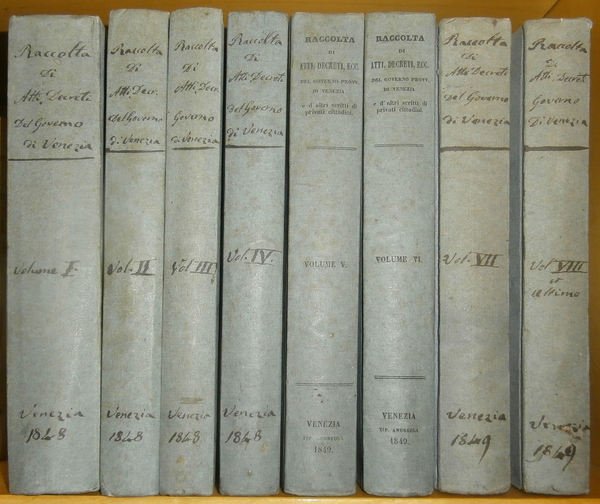 Raccolta
Di
Atti, Decreti
Del Governo
di Venezia
Volume I.
Venezia
1848
Raccolta
Di
Atti, Decr.
del Governo
di Venezia
Vol. II
Venezia
1848
Raccolta
Di
Atti, Decr.
Governo
di Venezia
Vol III
Venezia
1848
Raccolta
Di
Atti, Decreti
del Governo
di Venezia
Vol. IV.
Venezia
1848
RACCOLTA
DI
ATTI, DECRETI, ECC.
DEL GOVERNO PROVV.
DI VENEZIA
e d'altri scritti di
privati cittadini.
VOLUME V.
VENEZIA
TIP. ANDREOLA
1849.
RACCOLTA
DI
ATTI, DECRETI, ECC.
DEL GOVERNO PROVV.
DI VENEZIA
e d'altri scritti di
privati cittadini.
VOLUME VI.
VENEZIA
TIP. ANDREOLA
1849.
Raccolta
Di
Atti Decreti
del Governo
di Venezia
Vol. VII
Venezia
1849
Raccolta
Di
Atti, Decreti
Governo
Di Venezia
Vol VIII
et
ultimo
Venezia
1849